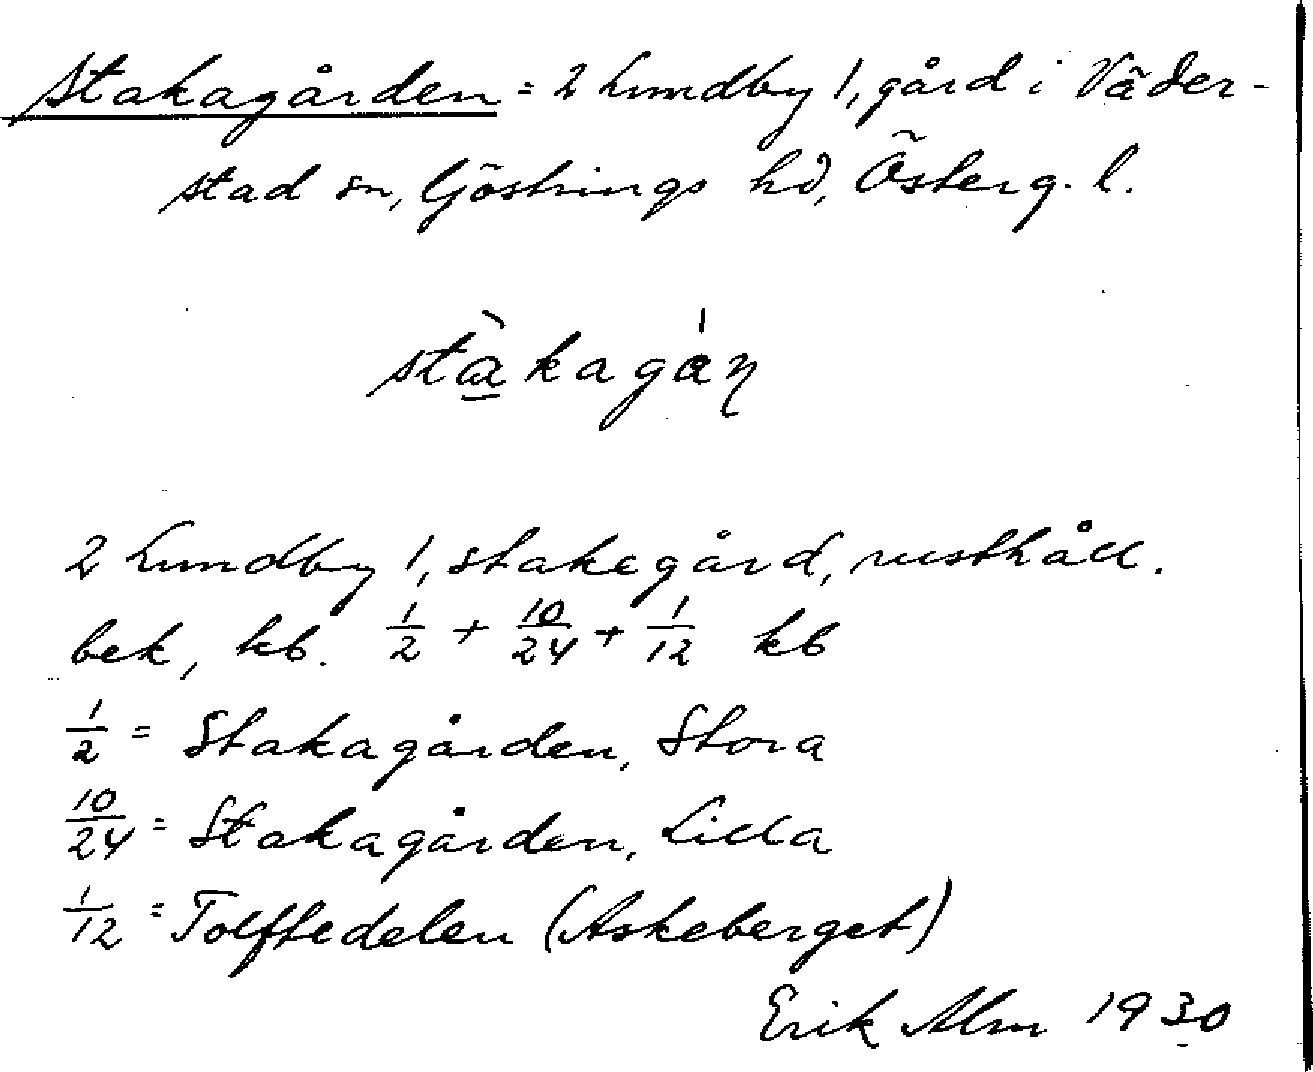 Stakagården = 2 Lundby 1, gård i Väder-
stad sn, Göstrings hd, Österg. l.
stàkagáɳ
2 Lundby 1, stakegård, rusthåll.
bek, kb. 1/2 + 10/24 + 1/12 kb
1/2 = Stakagården, Stora
10/24 = Stakagården, Lilla
1/12 = Tolftedelen (Askeberget)
Erik Alm 1930